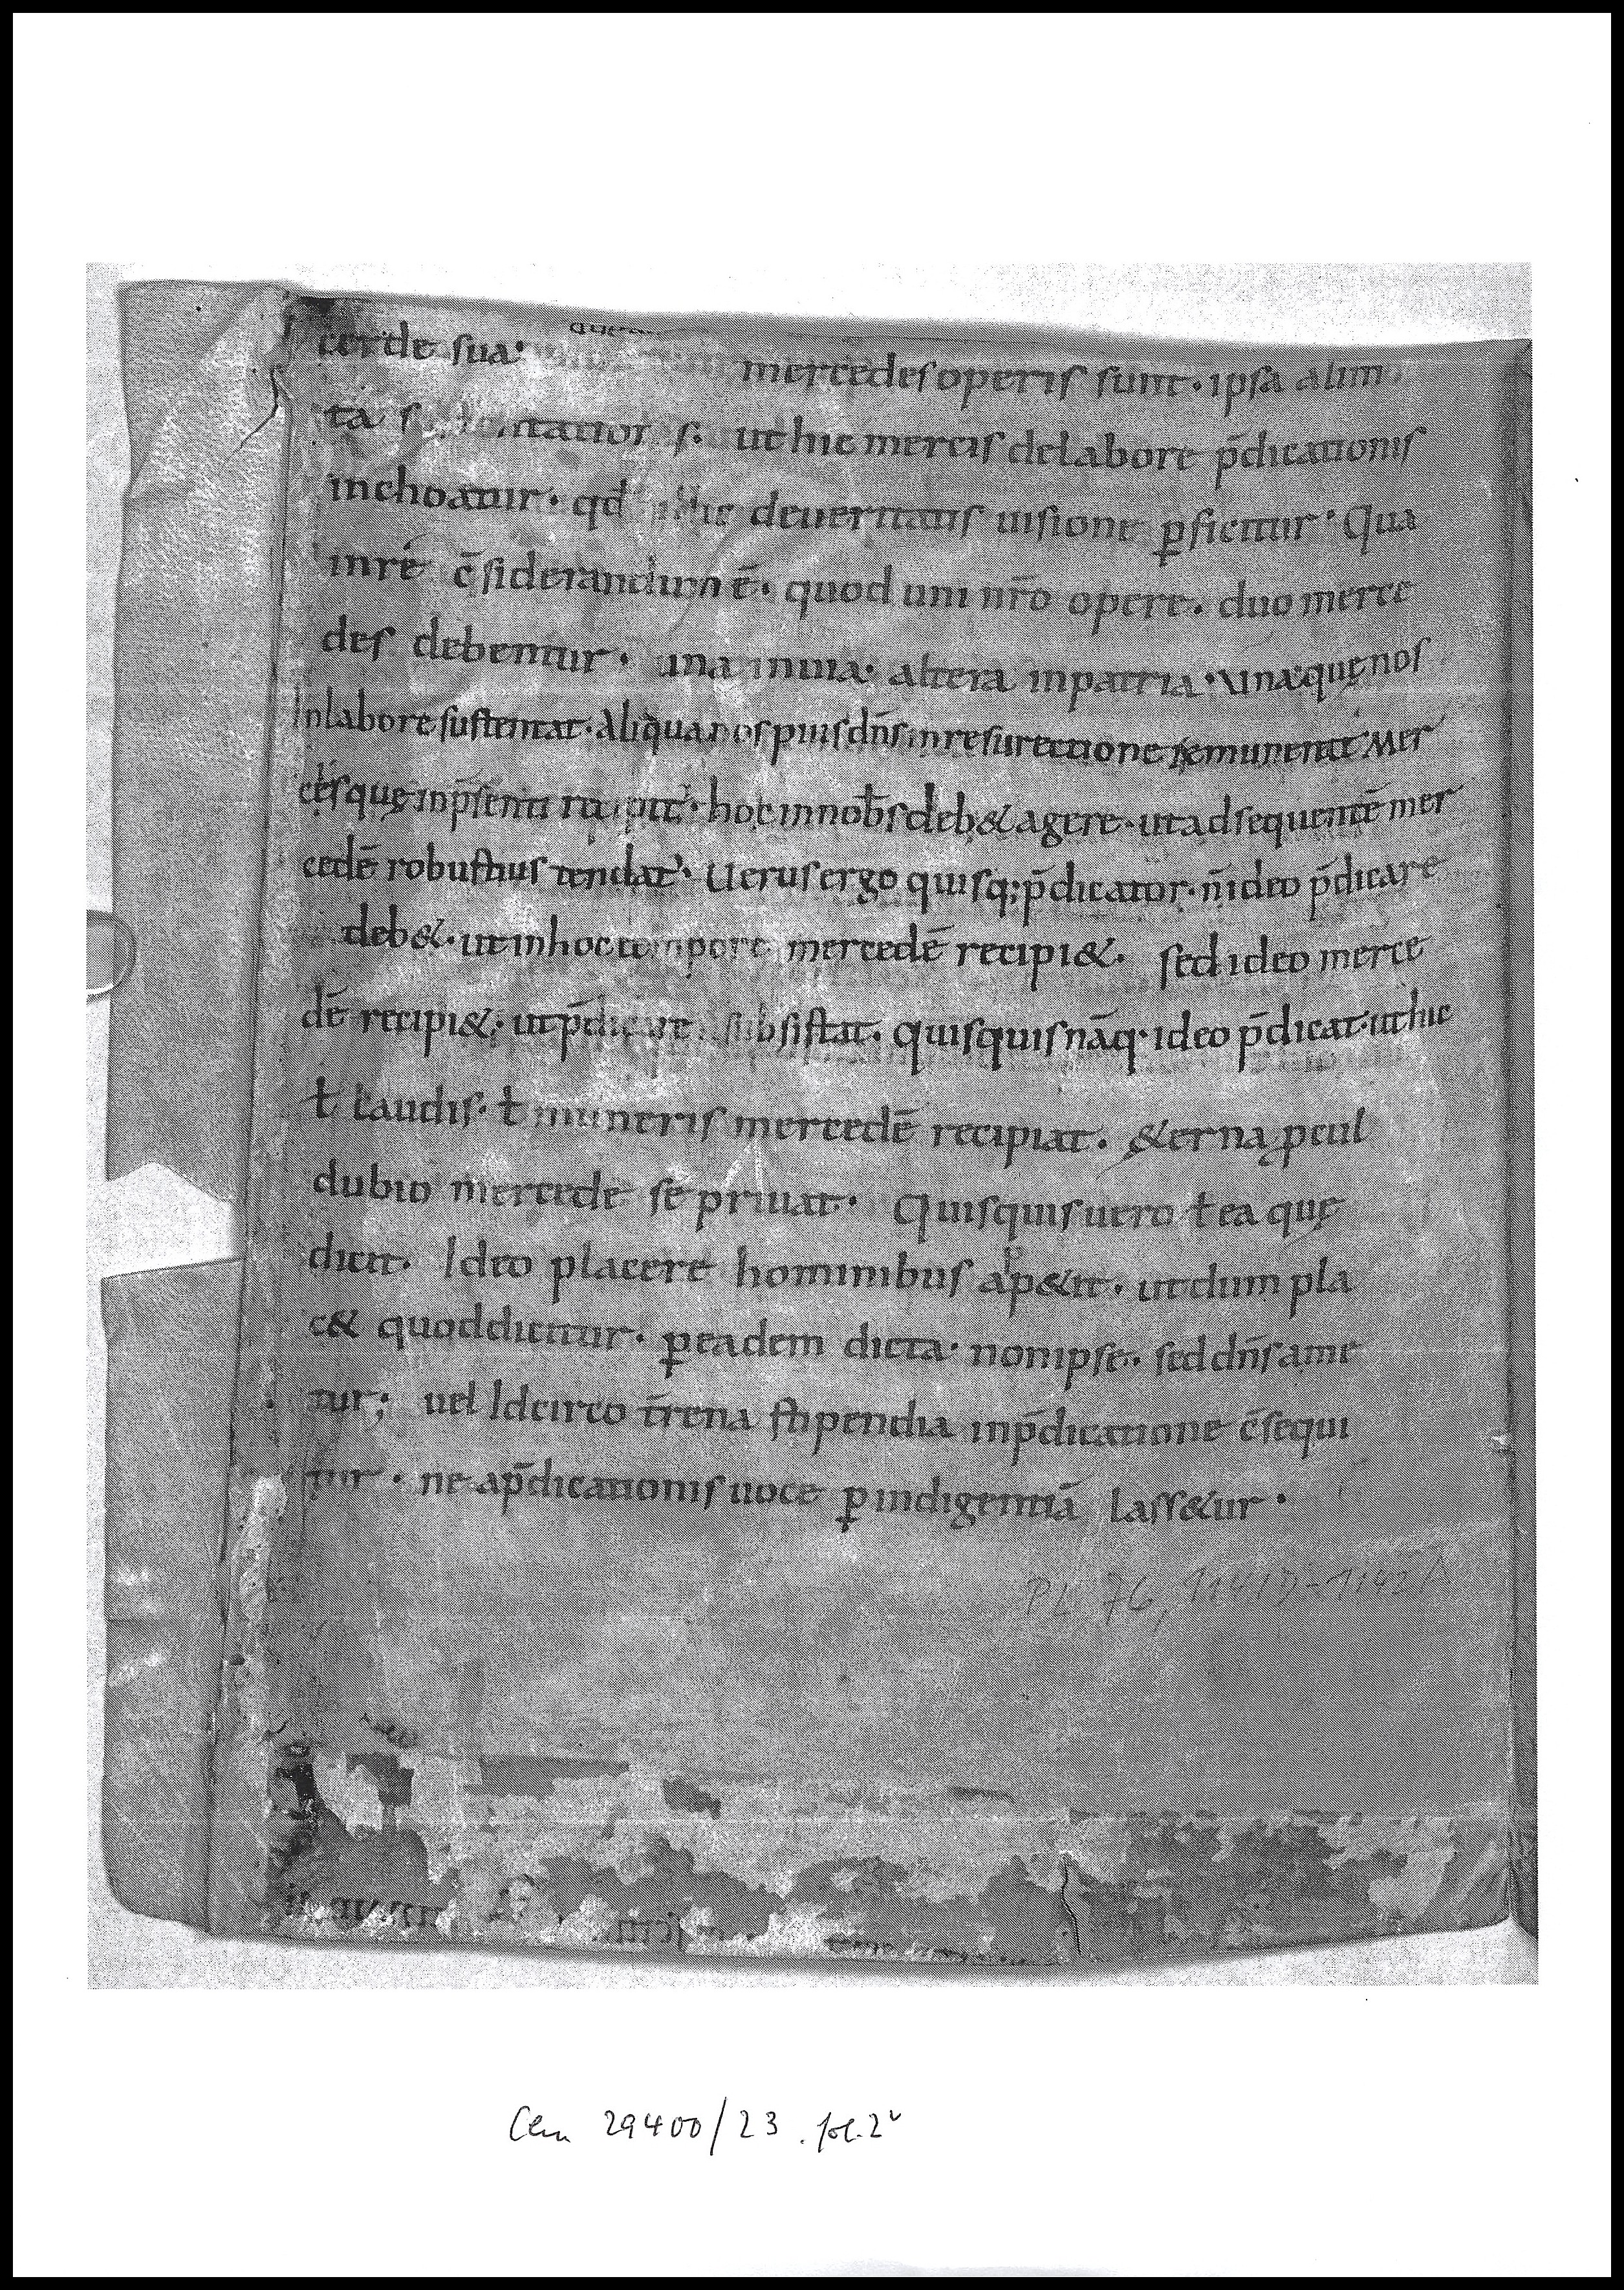 cerde sua· mercedes operis sunt· ipsa alim
ta s· ut hic mercis delabore p̄dicationis
inchoatur· qd̄ illic deueritatis uisione ꝑficitur· Qua
inre c̄siderandum ē· quod uni nr̄o opere· duo merce
des debentur· una inuia· altera inpatria· Una quę nos
Inlabore sustentat· Aliqua nos pius dn̄s inresurectione remunerat Mer
cesquę inp̄senti recipit᾽· hoc innob̄s deb& agere· utadsequentē mer
cedē robustius tendat᾽· Uerus ergo quisq; p̄dicator· n̄ ideo p̄dicare
deb&· utinhoc tempore mercedē recipi&· sed ideo merce
dē recipi&· utp̄dicare subsistat· quisquis nāq· ideo p̄dicat· uthic
ł laudis· ł muneris mercedē recipiat· &erna ꝓcul
dubio mercede se priuat· Quisquis uero ł ea quę
dicit· Ideo placere hominibus ap&it· utdum pla
c& quoddicitur· ꝑeadem dicta· nonipse· sed dn̄s ame
tur; uel Idcirco t̄rena stipendia inp̄dicatione c̄sequi
tur· ne ap̄dicationis uoce ꝑindigentiā lass&ur·
PL 76, 1141D-1142A
Clm 29400/23. fol. 2v